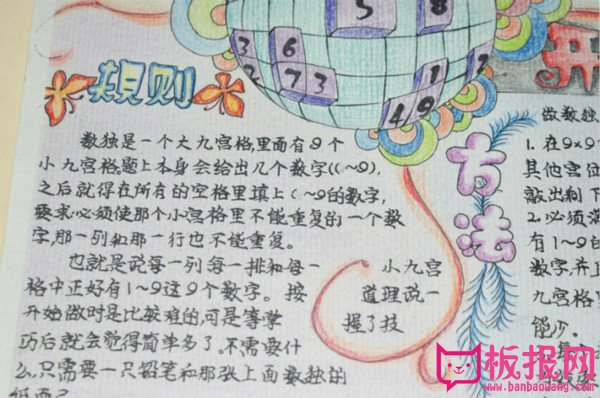 5 8
3 6
2 7 3 1
4 9
规则
开
方法
数独是一个大九宫格,里面有9个
小九宫格,题上本身会给出几个数字((~9),
之后就得在所有的空格里填上(~9的数字,
要求必须使那个小宫格里不能重复的一个数
字,那一列和那一行也不能重复。
也就是说每一列每一排和每一 小九宫
格中正好有1~9这9个数字。按 道理说一
开始做时是比较难的,可是等掌 握了技
巧后就会觉得简单多了。不需要什
么,只需要一只铅笔和那张上面数独的
纸而已
做数独
1.在9×9
其他宫位
敲出剩下
2.必须落
有1~9的
数字,并且
九宫格
能少。
板报网
www.banbaowang.com